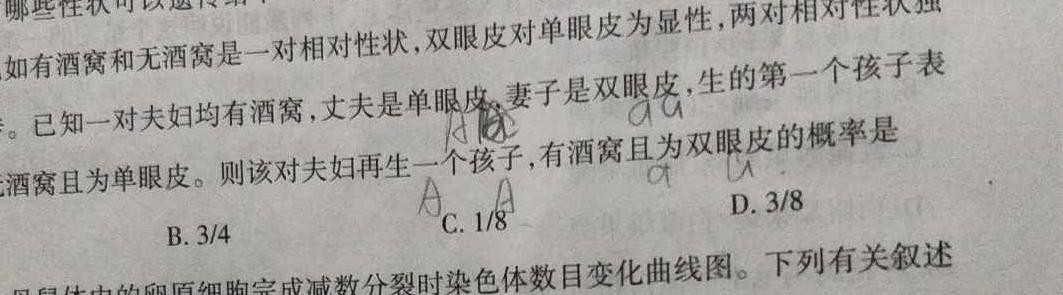 哪些性状可以遗传给
如有酒窝和无酒窝是一对相对性状,双眼皮对单眼皮为显性,两对相对性状独
。已知一对夫妇均有酒窝,丈夫是单眼皮,妻子是双眼皮,生的第一个孩子表
A aa
酒窝且为单眼皮。则该对夫妇再生一个孩子,有酒窝且为双眼皮的概率是
A A a a
B. 3/4 C. 1/8 D. 3/8
体内的卵原细胞完成减数分裂时染色体数目变化曲线图。下列有关叙述